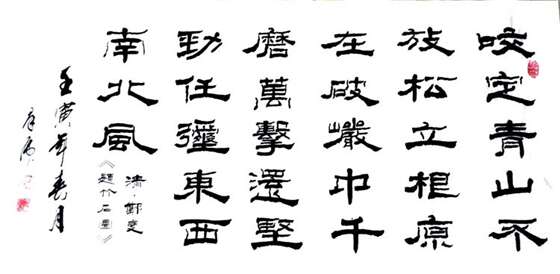 咬定青山不
放松立根原
在破巖中千
磨萬擊還堅
勁任彌東西
南北風
清·鄭燮
《題竹石畫》
壬寅年春月